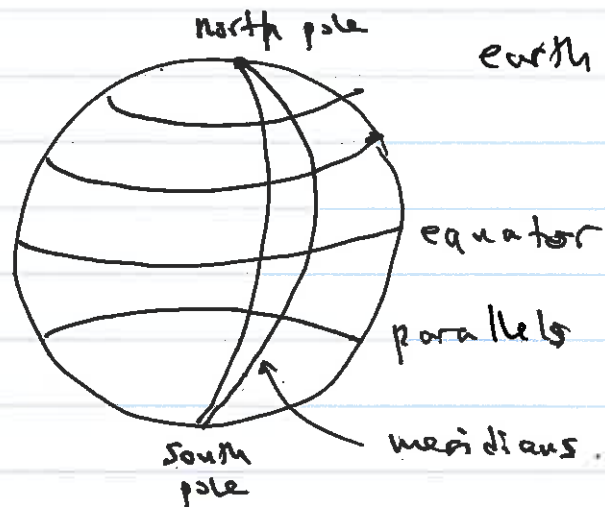 north pole
earth
equator
parallels
meridians.
south
pole